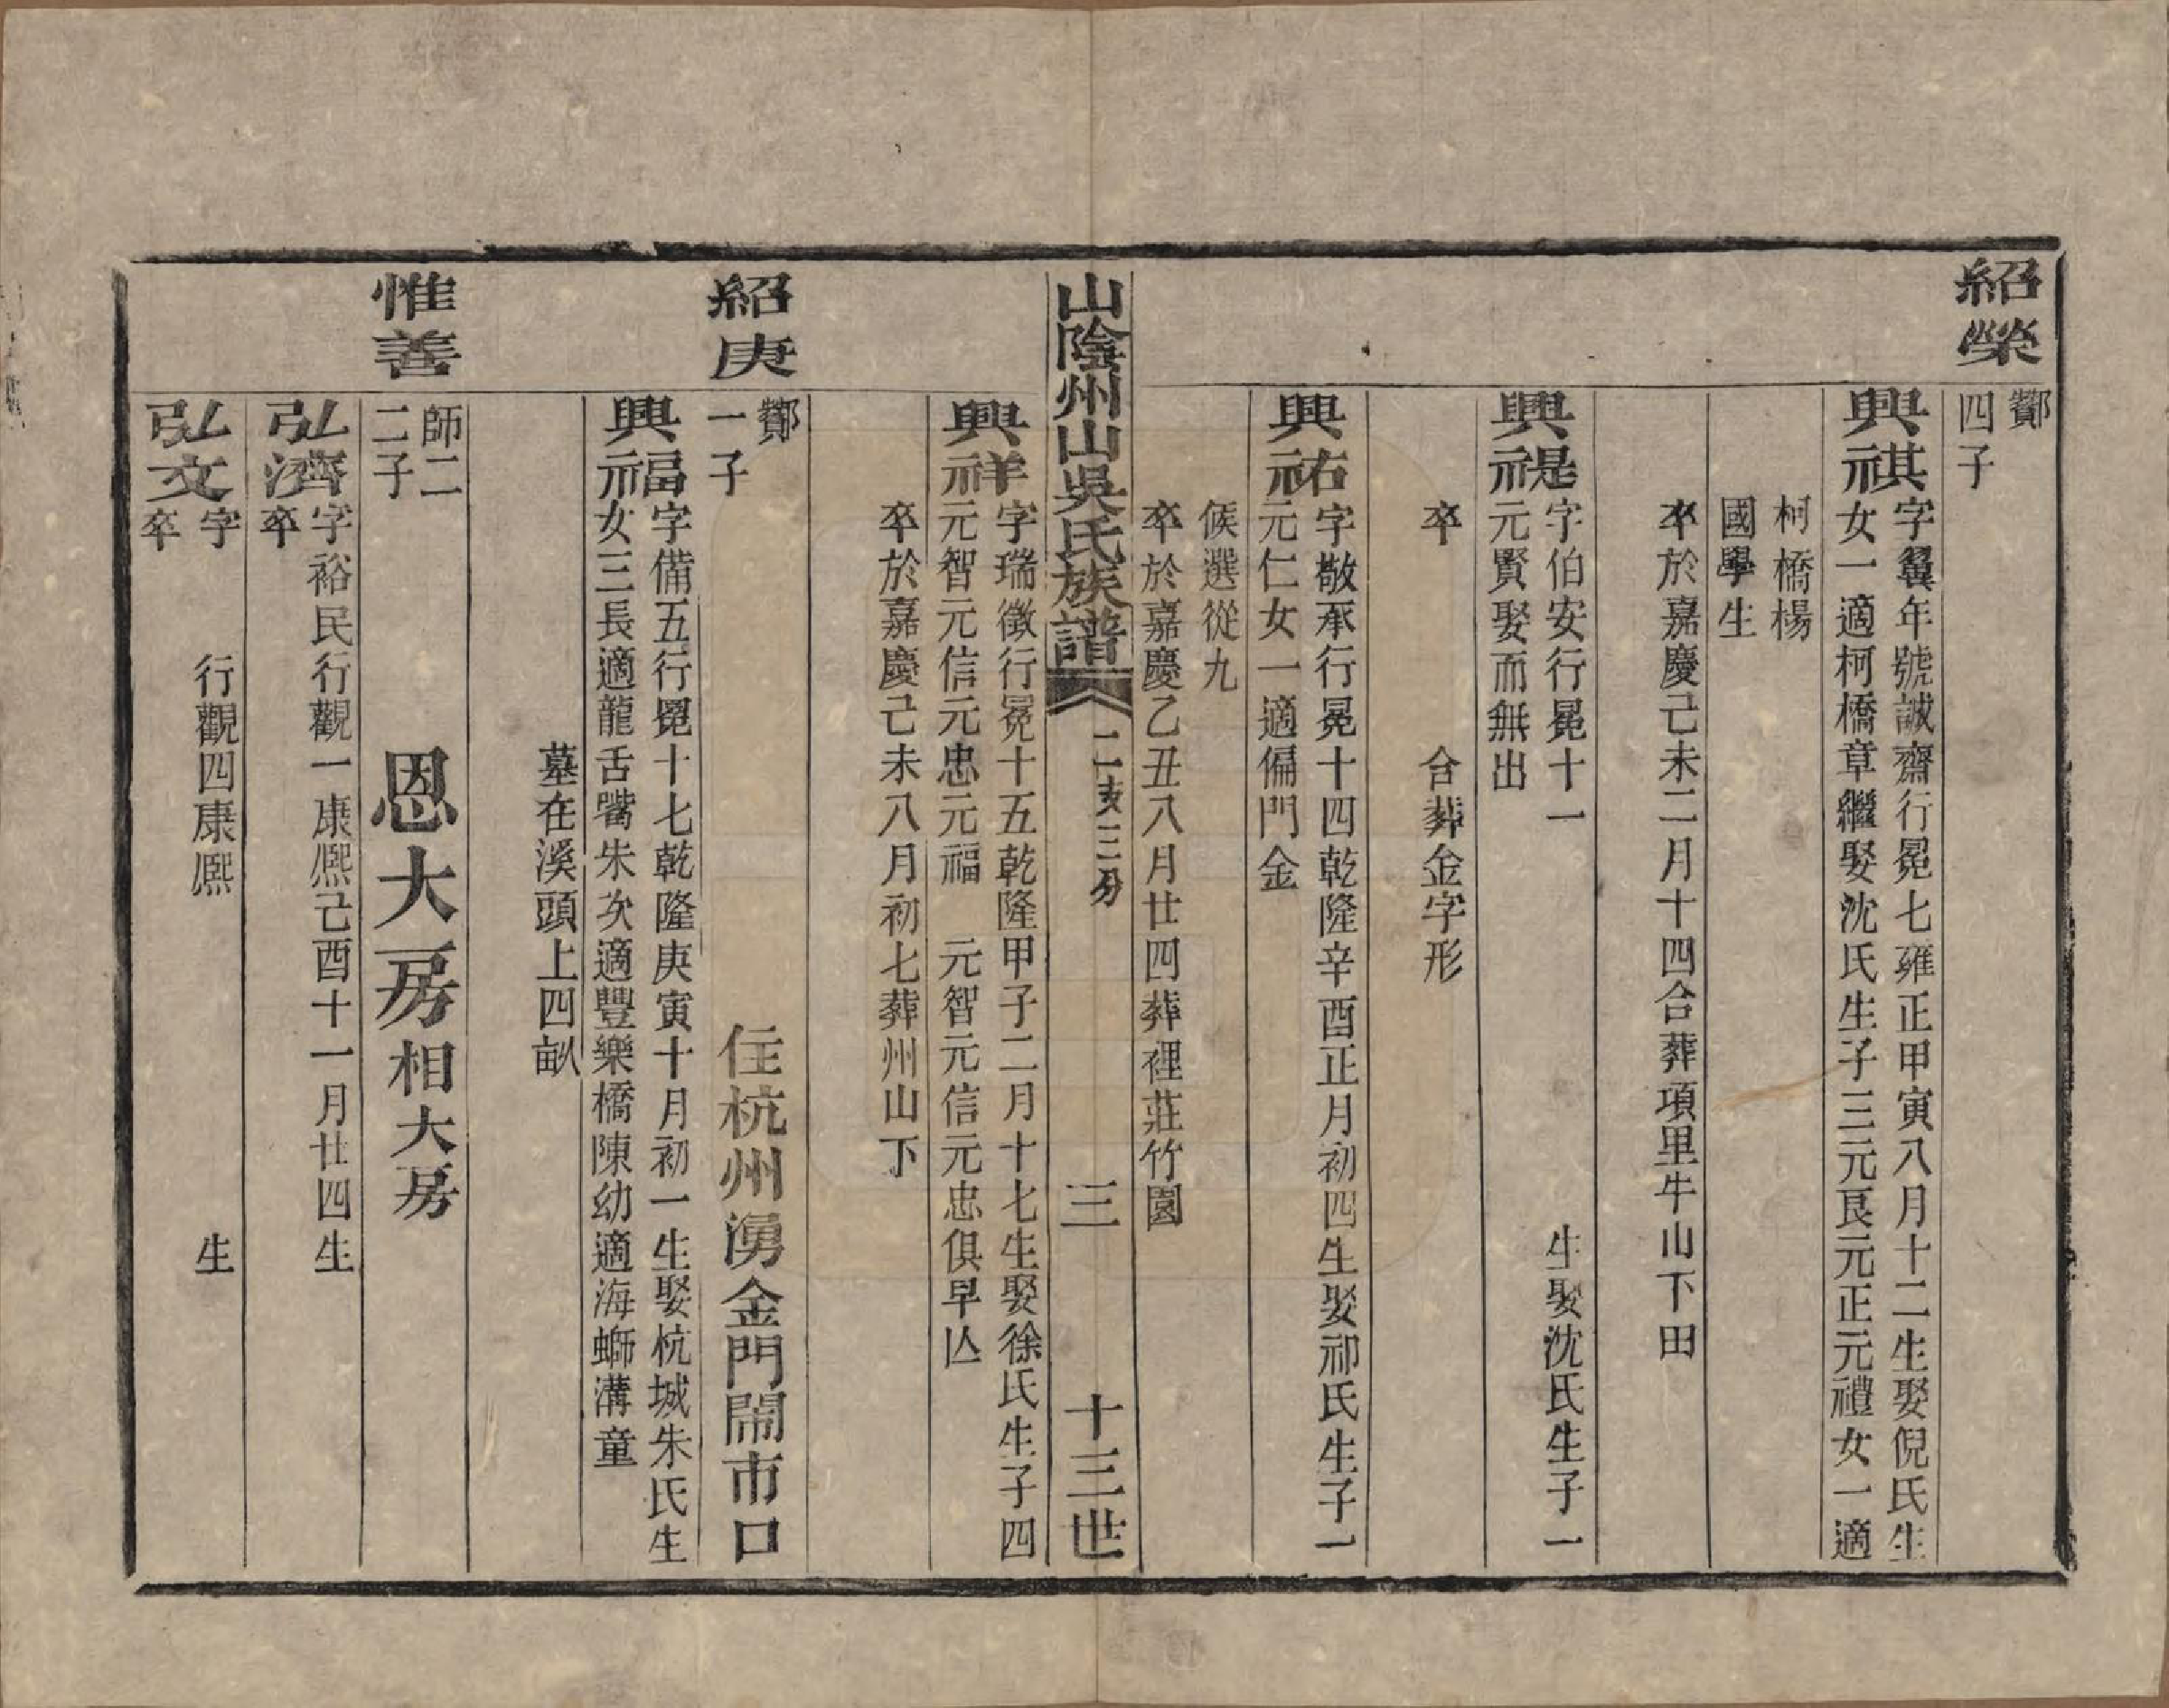 紹榮
酇
四子
興祺
字翼年號誠齋行冕七雍正甲寅八月十二生娶倪氏生
女一適柯橋章繼娶沈氏生子三元艮元正元禮女一適
柯橋楊
國學生
卒於嘉慶己未二月十四合葬項里牛山下田
興禔
字伯安行冕十一 生娶沈氏生子一
元賢娶而無出
卒 合葬金字形
興祐
字敬承行冕十四乾隆辛酉正月初四生娶祁氏生子一
元仁女一適偏門金
候選從九
卒於嘉慶乙丑八月廿四葬裡莊竹園
山陰州山吳氏族譜 二支三分 三 十三世
興祥
字瑞徵行冕十五乾隆甲子二月十七生娶徐氏生子四
元智元信元忠元福 元智元信元忠俱早亾
卒於嘉慶己未八月初七葬州山下
紹庚
酇
一子
住杭州湧金門鬧市口
興福
字備五行冕十七乾隆庚寅十月初一生娶杭城朱氏生
女三長適龍舌嘴朱次適豐樂橋陳幼適海螄溝童
墓在溪頭上四畝
惟善
師二
二子
恩大房相大房
弘濟
字裕民行觀一康熙己酉十一月廿四生
卒
弘文
字 行觀四康熙 生
卒